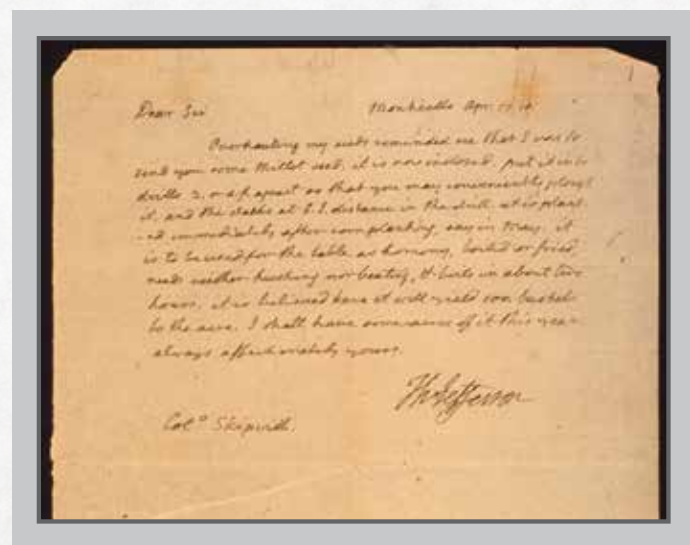 Dear Sir Monticello Apr.
Overhauling my seeds reminded me that I was to
send you some Millet seed. it is now inclosed. put it in
drills apart so that you may conveniently plough
it, and the stalks at distance in the drill. it is plant
-ed immediately after corn planting, say in May. it
is to be used for the table as homony, boiled or fried,
needs neither husking nor beating, it boils in about two
hours. it is believed here it will yield bushels
to the acre. I shall have some acres of it this year
always affectionately yours.
Th Jefferson
Colo Skipwith.